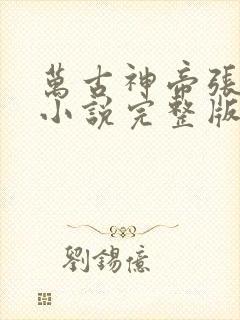 萬古神帝張
小說完整版
劉錫億